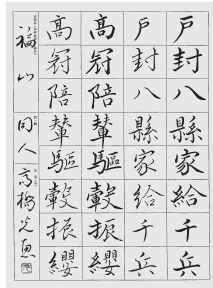 戸封八縣家給千兵
戸封八縣家給千兵
高冠陪輦驅轂振纓
高冠陪輦驅轂振纓
福山 同人 高橋